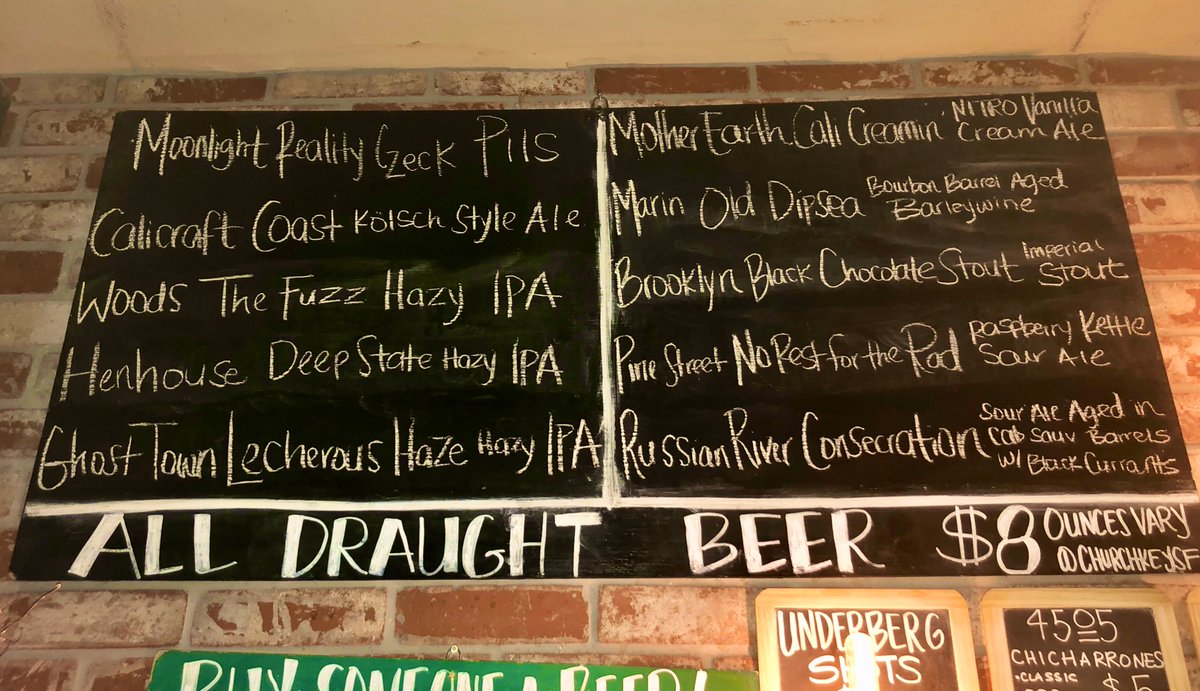 Moonlight Reality Czeck Pils
Calicraft Coast Kölsch Style Ale
Woods The Fuzz Hazy IPA
Henhouse Deep State Hazy IPA
Ghost Town Lecherous Haze Hazy IPA
Mother Earth Cali Creamin' NITRO Vanilla
Cream Ale
Marin Old Dipsea Bourbon Barrel Aged
Barleywine
Brooklyn Black Chocolate Stout Imperial
Stout
Pine Street No Rest for the Rad Raspberry Kettle
Sour Ale
Russian River Consecration Sour Ale Aged in
Cab Sauv Barrels
w/ Black Currants
ALL DRAUGHT BEER $8 OUNCES VARY
@CHURCHKEYSF
BUY SOMEONE A BEER!
UNDERBERG
SHOTS
4505
CHICHARRONES
•CLASSIC $5